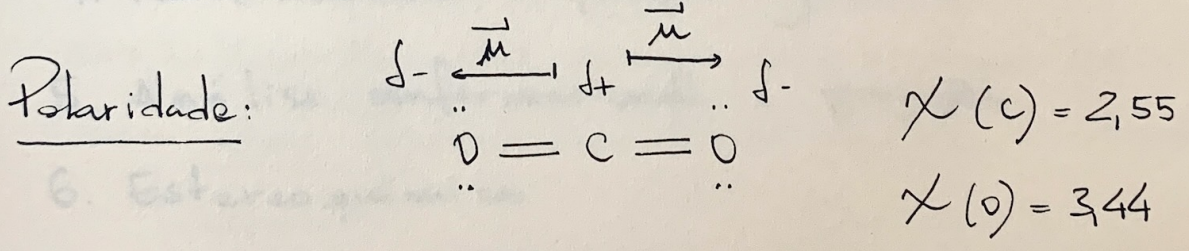 Polaridade:
μ⃗ μ⃗
δ- δ+ δ-
O = C = O
χ (C) = 2,55
χ (O) = 3,44